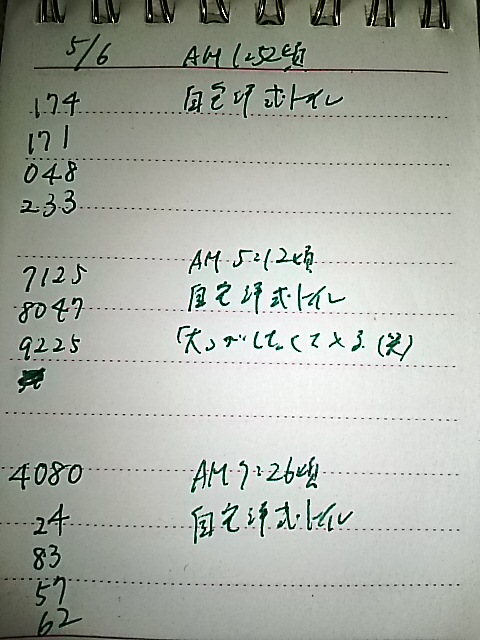 5/6 AM 1:52頃
174 自宅洋式トイレ
171
048
233
7125 AM 5:12頃
8047 自宅洋式トイレ
9225 「大」がしたくて (笑)
4080 AM 7:26頃
24 自宅洋式トイレ
83
57
62